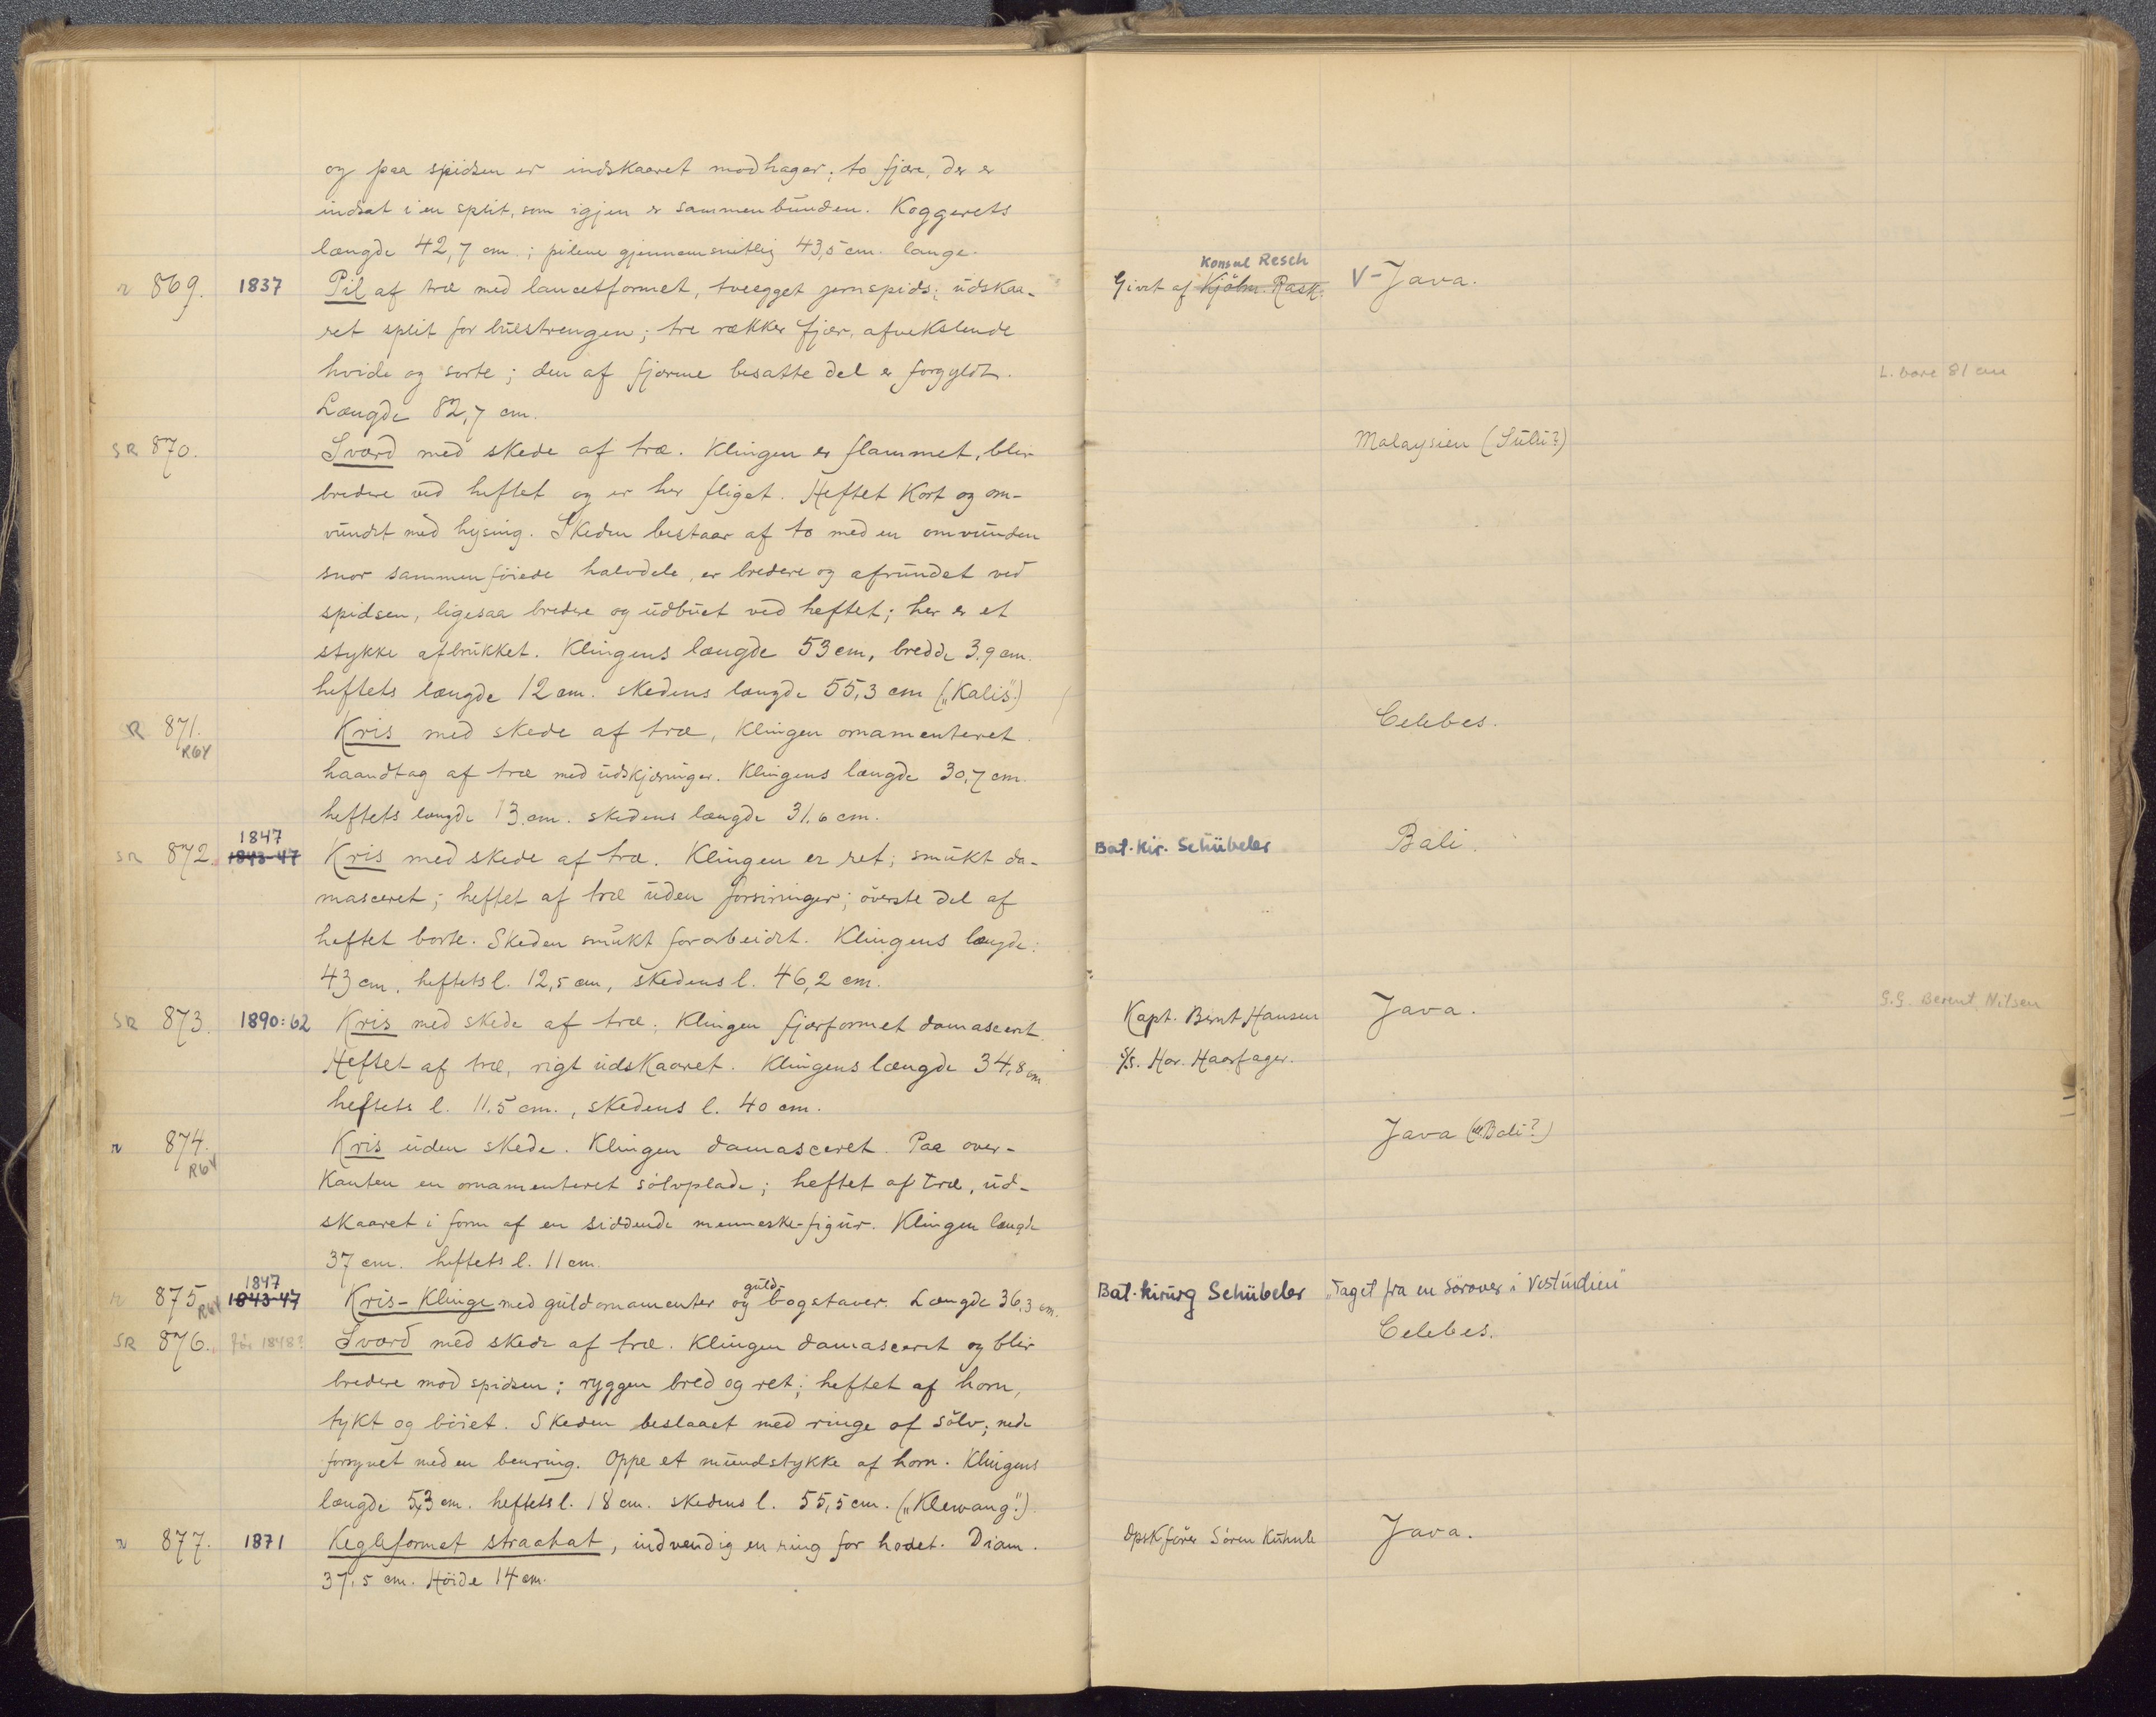 og paa spidsen er indskaaret modhager; to fjære, der er
indsat i en split, som igjen er sammenbunden. Koggerets
længde 42,7 cm.; pilene gjennemsnitlig 43,5 cm. lange.
r 869. 1837 Pil af træ med lancetformet, tveegget jernspids; udskaa-
ret split for buestrengen; tre rækker fjær, afvekslende
hvide og sorte; den af fjærene besatte del er forgyldt.
Længde 82,7 cm.
SR 870. Sværd med skede af træ. Klingen er flammet, blir
bredere ved heftet og er her fliget. Heftet kort og om-
vundet med hysing. Skeden bestaar af to med en omvunden
snor sammenföiede halvdele, er bredere og afrundet ved
spidsen, ligesaa bredere og udbuet ved heftet; her er et
stykke afbrukket. Klingens længde 53 cm, bredde 3.9 cm.
heftets længde 12 cm. skedens længde 55,3 cm („Kalis".)
R 871. RGY Kris med skede af træ, Klingen ornamenteret.
haandtag af træ med udskjæringer. Klingens længde 30,7 cm.
heftets længde 13 cm. skedens længde 31.6 cm.
1847
SR 872. 1843-47 Kris med skede af træ. Klingen er ret; smukt da-
masceret; heftet af træ uden forsiringer; överste del af
heftet borte. Skeden smukt forarbeidet. Klingens længde:
43 cm, heftets l. 12,5 cm, skedens l. 46,2 cm.
SR 873. 1890:62 Kris med skede af træ. Klingen fjærformet damasceret.
Heftet af træ, rigt udskaaret. Klingens længde 34,8 cm
heftets l. 11.5 cm., skedens l. 40 cm.
r 874. RGY Kris uden skede. Klingen damasceret. Paa over-
kanten en ornamenteret sölvplade; heftet af træ, ud-
skaaret i form af en siddende menneske-figur. Klingen længde
37 cm. heftets l. 11 cm.
1847
r 875 RGY 1843-47 Kris-Klinge med guldornamenter og guld-bogstaver. Længde 36,3 cm.
SR 876. för 1848? Sværd med skede af træ. Klingen damasceret og blir
bredere mod spidsen; ryggen bred og ret; heftet af horn,
tykt og böiet. Skeden beslaaet med ringe af sölv; nede
forsynet med en benring. Oppe et mundstykke af horn. Klingens
længde 53 cm. heftets l. 18 cm. skedens l. 55,5 cm. („Klewang".)
r 877. 1871 Kegleformet straahat, indvendig en ring for hodet. Diam.
37,5 cm. Höide 14 cm.
Konsul Resch
Givet af Kjöbm. Rask. V-Java.
L. bare 81 cm
Malaysien (Sulu?)
Celebes.
Bat. kir. Schübeler Bali.
Kapt. Bernt Hansen Java. G.G. Berent Nilsen
S/S. Har. Haarfager.
Java (el. Bali?)
Bat. kirurg Schübeler „Taget fra en Sörover i Vestindien"
Celebes.
Sören Java.